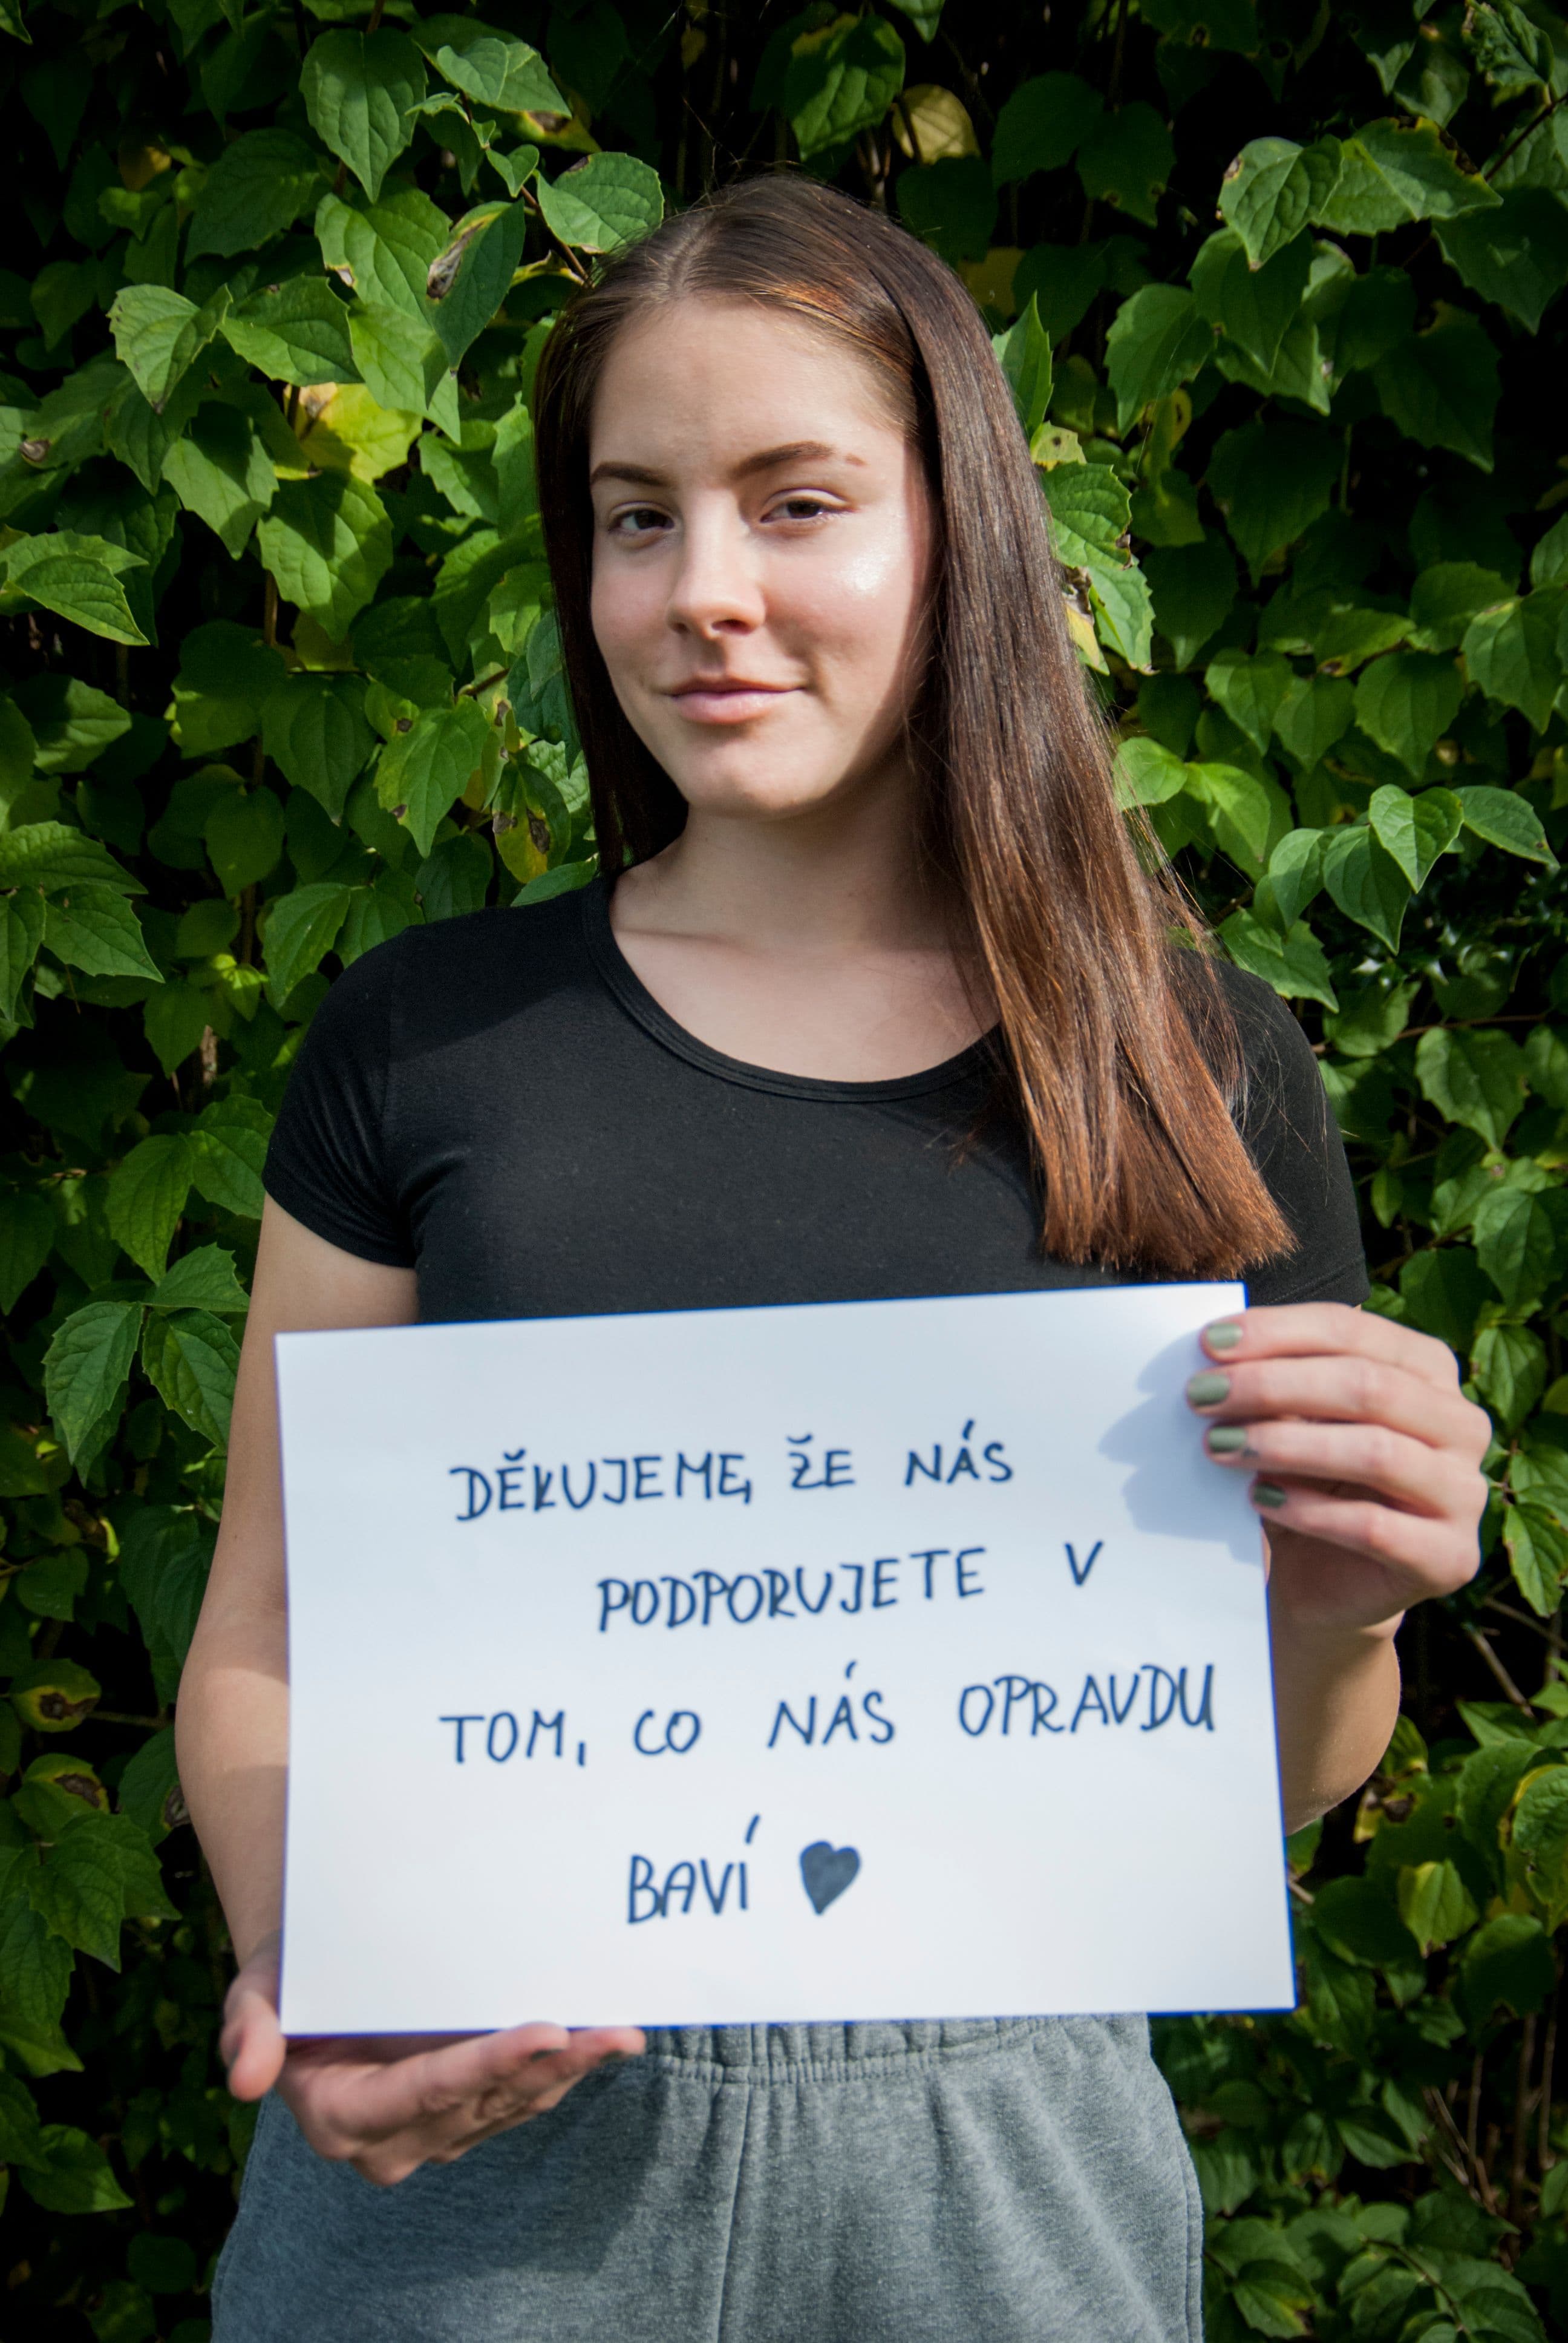 DĚKUJEME, ŽE NÁS
PODPORUJETE V
TOM, CO NÁS OPRAVDU
BAVÍ ♥